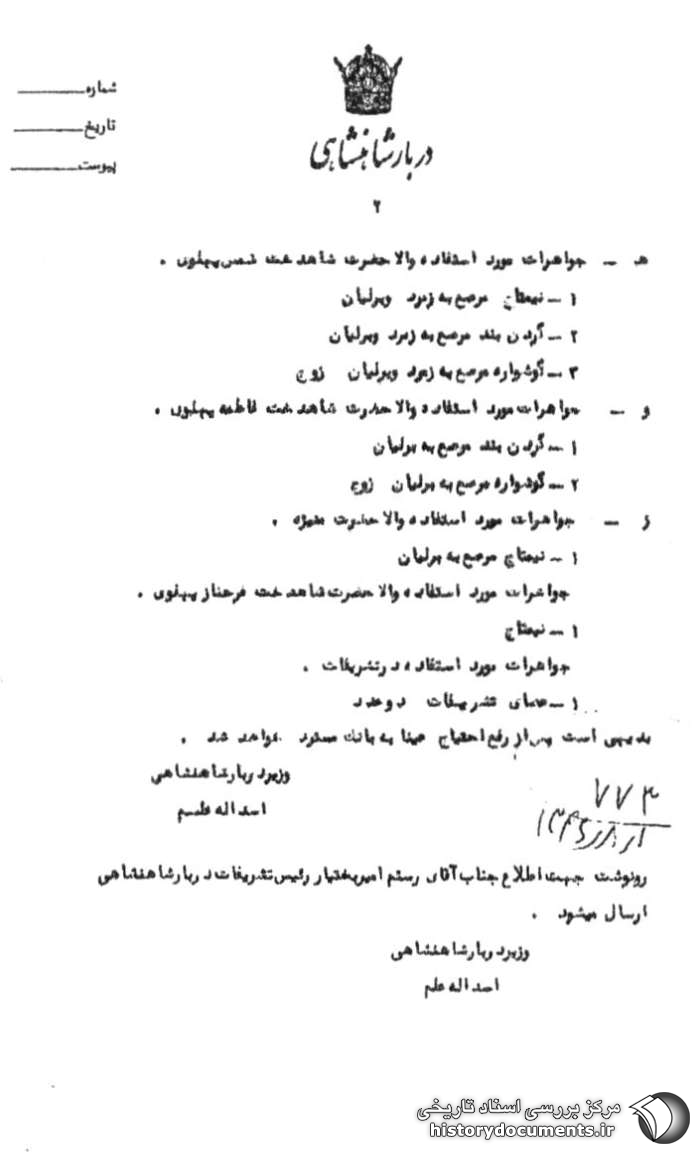 شماره
تاریخ
پیوست
دربار شاهنشاهی
۲
هـ - جواهرات مورد استفاده والاحضرت شاهدخت شمس پهلوی .
۱ - نیمتاج مرصع به زمرد وبرلیان
۲ - گردن بند مرصع به زمرد وبرلیان
۳ - گوشواره مرصع به زمرد وبرلیان زوج
و - جواهرات مورد استفاده والاحضرت شاهدخت فاطمه پهلوی .
۱ - گردن بند مرصع به برلیان
۲ - گوشواره مرصع به برلیان زوج
ز - جواهرات مورد استفاده والاحضرت منیژه .
۱ - نیمتاج مرصع به برلیان
جواهرات مورد استفاده والاحضرت شاهدخت فرحناز پهلوی .
۱ - نیمتاج
جواهرات مورد استفاده درتشریفات .
۱ - عصای تشریفات دوعدد
بدیهی است پس از رفع احتیاج عینا به بانک مسترد خواهد شد .
وزیردربارشاهنشاهی
اسداله علم
۷۷۳
رونوشت جهت اطلاع جناب آقای رستم امیربختیار رئیس تشریفات دربارشاهنشاهی
ارسال میشود .
وزیردربارشاهنشاهی
اسداله علم
مرکز بررسی اسناد تاریخی
historydocuments.ir